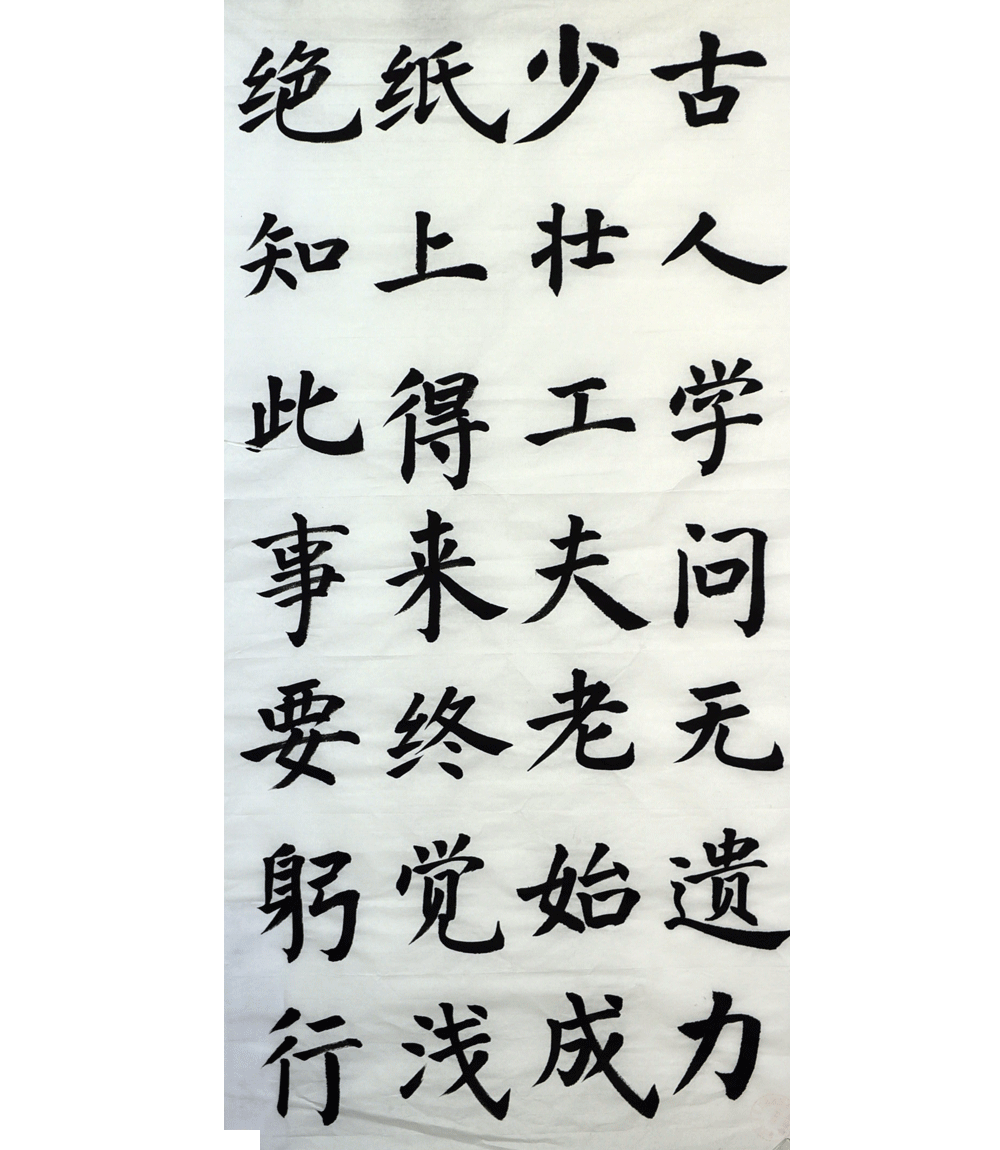 古人学问无遗力
少壮工夫老始成
纸上得来终觉浅
绝知此事要躬行